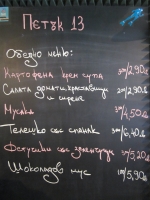 Петък 13
Обедно меню:
Картофена крем супа 300/2,90лв
Салата домати, краставици
и сирене 200/2,90лв
Мусака 300/4,50лв
Телешко със спанак 300/6,40лв
Фетучини със зеленчуци 300/5,20лв
Шоколадов мус 150/5,90лв